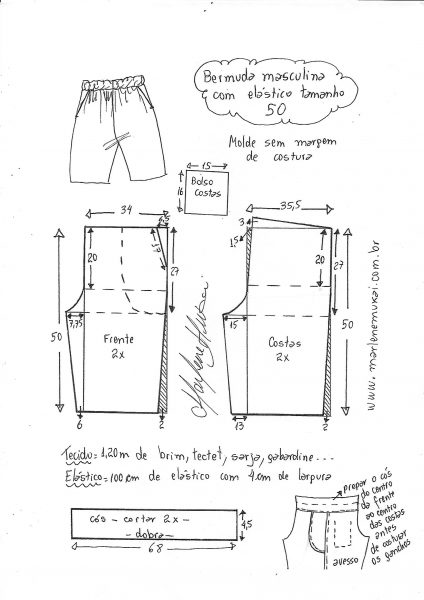 Bermuda masculina
com elástico tamanho
50
Molde sem margem
de costura
15
16
Bolso
costas
34
20
27
50
7,75
Frente
2x
6
2
35,5
3
1,5
20
27
50
15
Costas
2x
13
2
Marlene Mukai
www.marlenemukai.com.br
Tecido=1,20m de brim, tectel, sarja, gabardine...
Elástico=100cm de elástico com 4cm de largura
cós - cortar 2x -
- dobra -
4,5
68
prepar o cós
do centro
da frente
ao centro
das costas
antes
de costurar
os ganchos
avesso